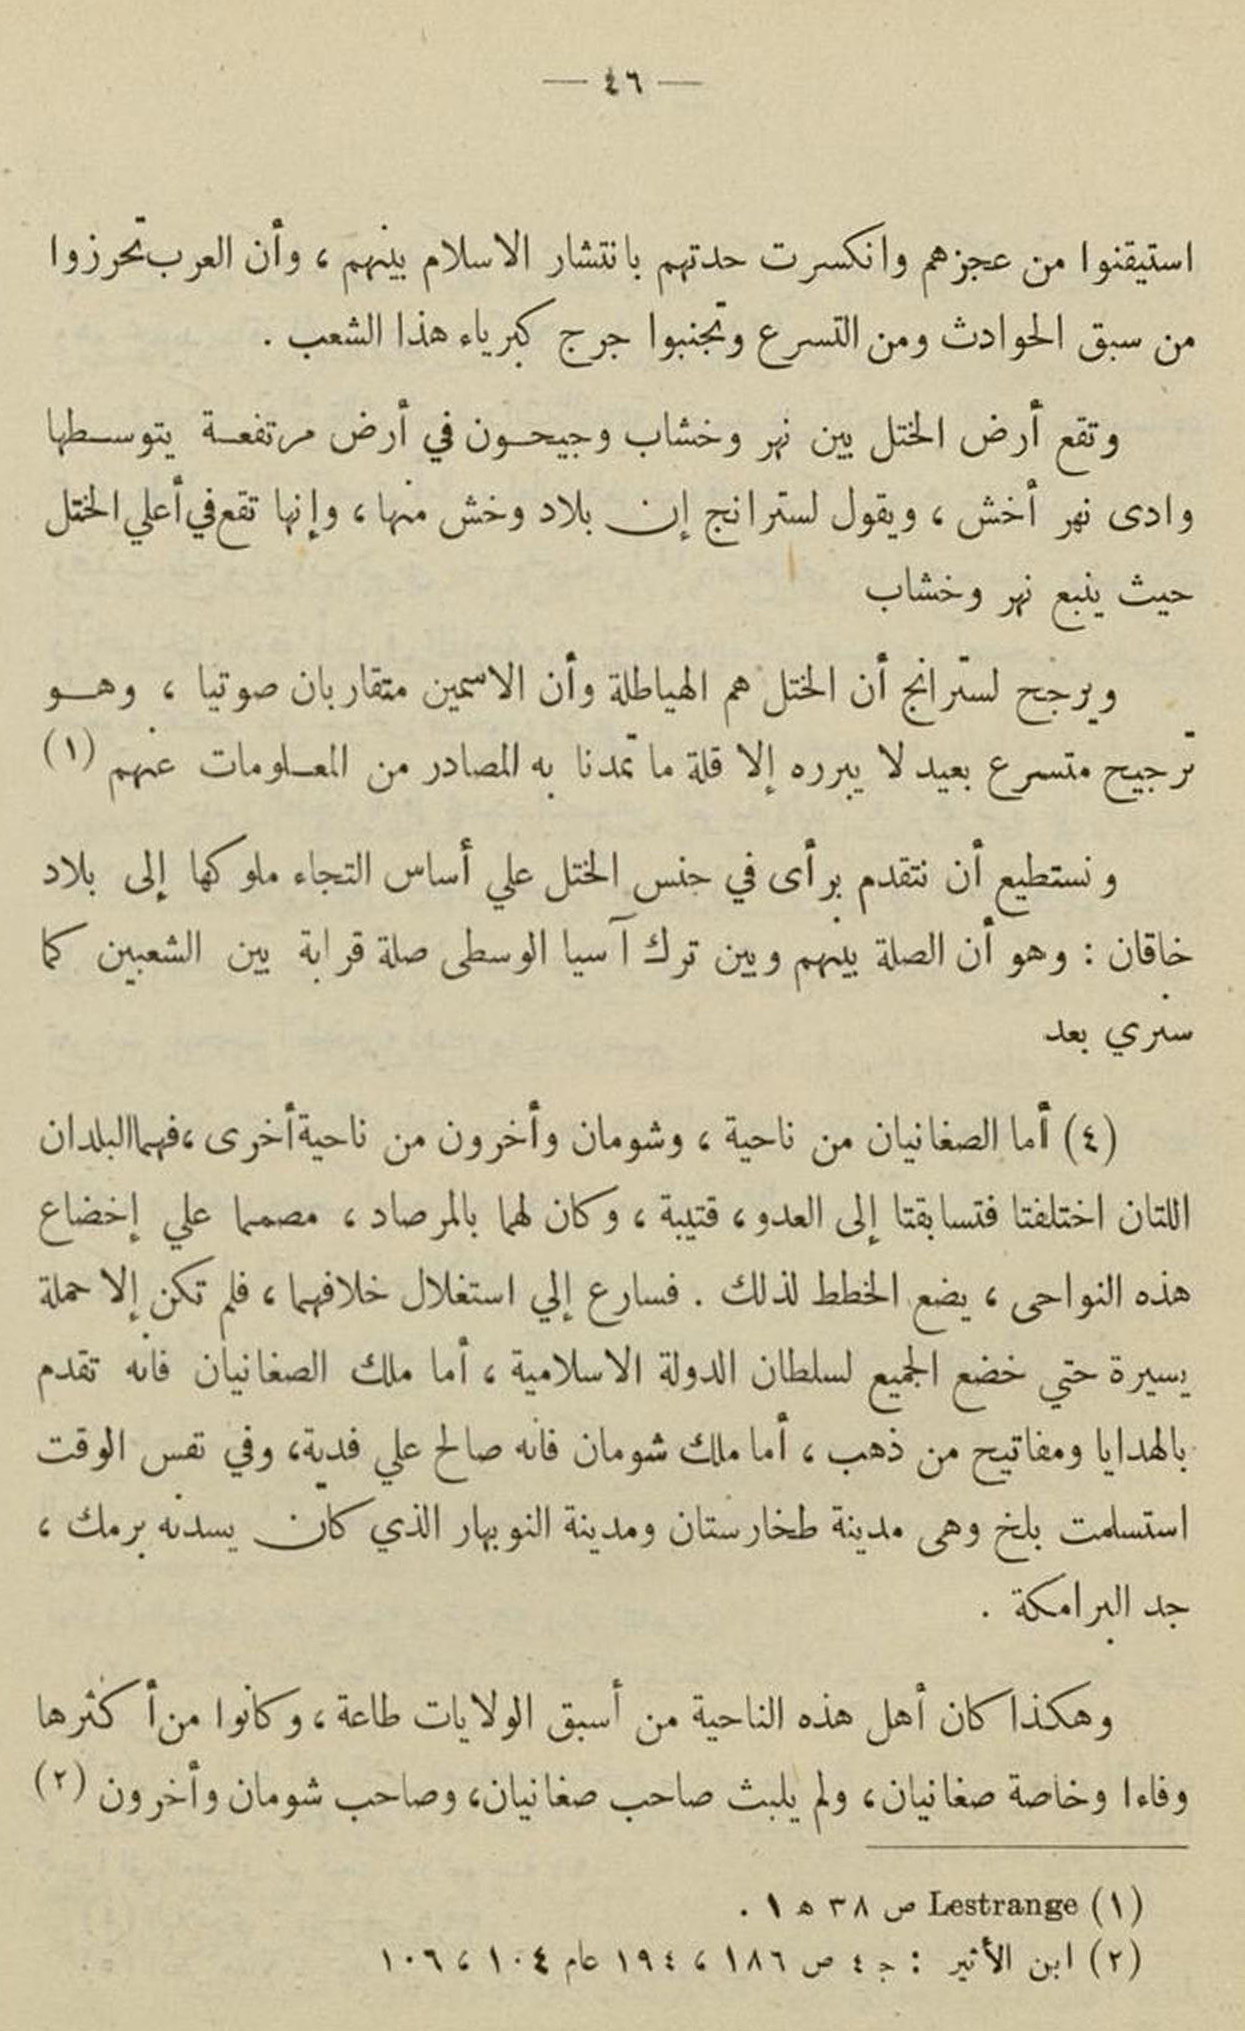 — ٤٦ —
استيقنوا من عجزهم وانكسرت حدتهم بانتشار الاسلام بينهم ، وأن العرب تحرزوا
من سبق الحوادث ومن التسرع وتجنبوا جرج كبرياء هذا الشعب .
وتقع أرض الختل بين نهر وخشاب وجيحون في أرض مرتفعة يتوسطها
وادى نهر أخش ، ويقول لسترانج إن بلاد وخش منها ، وإنها تقع في أعلي الختل
حيث ينبع نهر وخشاب
ويرجح لسترانج أن الختل هم الهياطلة وأن الاسمين متقاربان صوتيا ، وهو
ترجيح متسرع بعيد لا يبرره إلا قلة ما تمدنا به المصادر من المعلومات عنهم (١)
ونستطيع أن نتقدم برأى في جنس الختل علي أساس التجاء ملوكها إلى بلاد
خاقان : وهو أن الصلة بينهم وبين ترك آسيا الوسطى صلة قرابة بين الشعبين كما
سنري بعد
(٤) أما الصغانيان من ناحية ، وشومان وأخرون من ناحية أخرى ، فهما البلدان
اللتان اختلفتا فتسابقتا إلى العدو ، قتيبة ، وكان لهما بالمرصاد ، مصمما علي إخضاع
هذه النواحى ، يضع الخطط لذلك . فسارع إلي استغلال خلافهما ، فلم تكن إلا حملة
يسيرة حتي خضع الجميع لسلطان الدولة الاسلامية ، أما ملك الصغانيان فانه تقدم
بالهدايا ومفاتيح من ذهب ، أما ملك شومان فانه صالح علي فدية ، وفي نفس الوقت
استسلمت بلخ وهى مدينة طخارستان ومدينة النوبهار الذي كان يسدنه برمك ،
جد البرامكة .
وهكذا كان أهل هذه الناحية من أسبق الولايات طاعة ، وكانوا من أكثرها
وفاءا وخاصة صغانيان ، ولم يلبث صاحب صغانيان ، وصاحب شومان وأخرون (٢)
(١) Lestrange ص ٣٨ ه ١ .
(٢) ابن الأثير : ج ٤ ص ١٨٦ ، ١٩٤ عام ١٠٤ ، ١٠٦